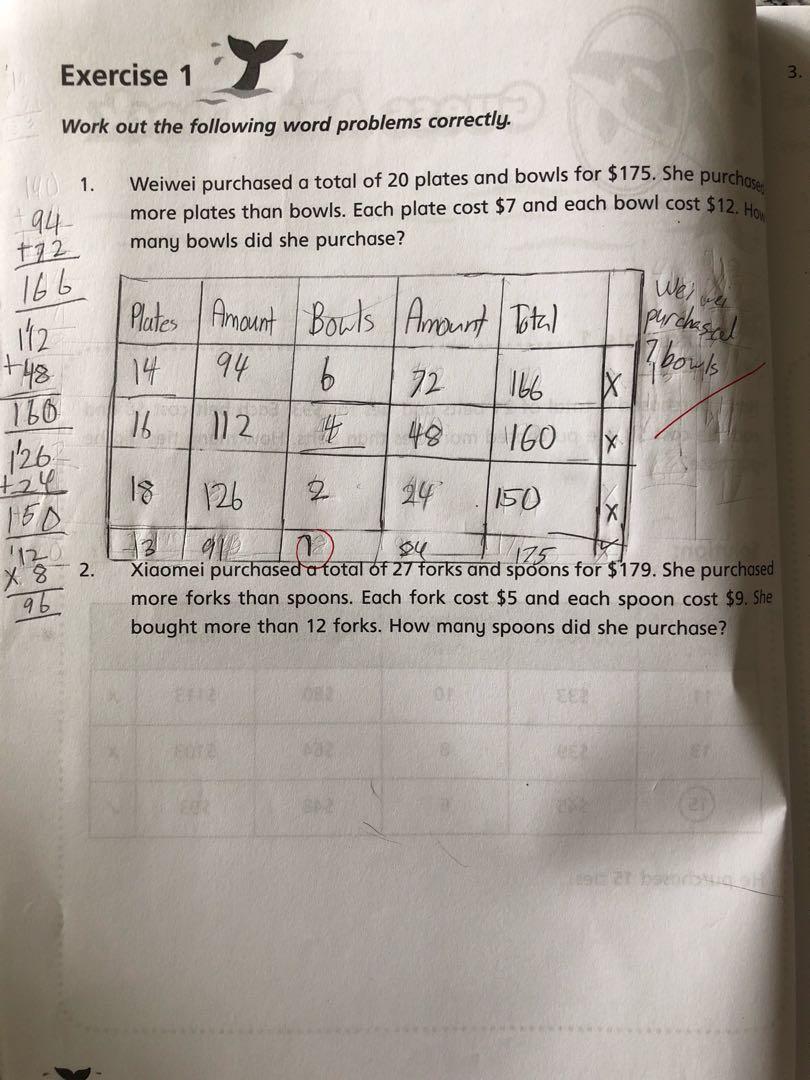 Exercise 1
3.
Work out the following word problems correctly.
1. Weiwei purchased a total of 20 plates and bowls for $175. She purchased
more plates than bowls. Each plate cost $7 and each bowl cost $12. How
many bowls did she purchase?
94
+72
166
112
+48
160
126
+24
150
12
x 8
96
Plates Amount Bowls Amount Total
14 94 6 72 166 X
16 112 4 48 160 x
18 126 2 24 150 x
13 91 7 84 175
Weiwei
purchased
7 bowls
2. Xiaomei purchased a total of 27 forks and spoons for $179. She purchased
more forks than spoons. Each fork cost $5 and each spoon cost $9. She
bought more than 12 forks. How many spoons did she purchase?